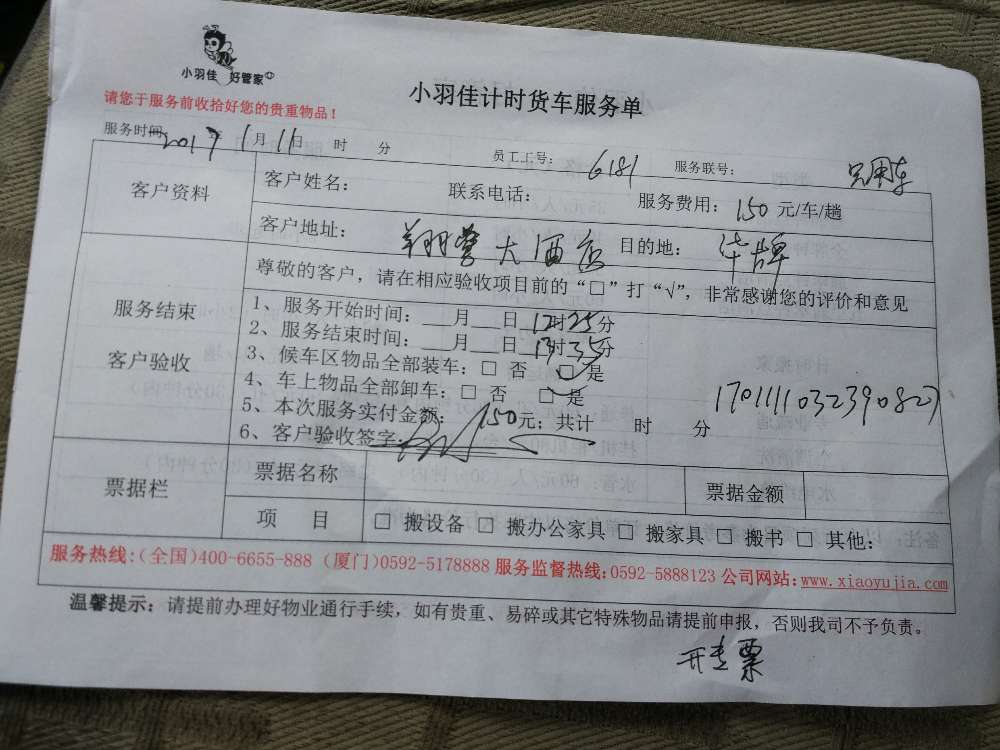 小羽佳 好管家
小羽佳计时货车服务单
请您于服务前收拾好您的贵重物品！
服务时间 2017年 1月11日 时 分 员工工号： 6181 服务联号： 只用车
客户资料
客户姓名： 联系电话： 服务费用：150 元/车/趟
客户地址： 翔鹭大酒店 目的地：
尊敬的客户，请在相应验收项目前的“□”打“√”，非常感谢您的评价和意见
服务结束
客户验收
1、服务开始时间：___月___日 12时25分
2、服务结束时间：___月___日 13时35分
3、候车区物品全部装车：□ 否 □ 是
4、车上物品全部卸车：□ 否 □ 是
5、本次服务实付金额：150元；共计 时 分
6、客户验收签字：
170111103239082
票据栏
票据名称 票据金额
项 目 □ 搬设备 □ 搬办公家具 □ 搬家具 □ 搬书 □ 其他：
服务热线：(全国)400-6655-888 (厦门)0592-5178888 服务监督热线：0592-5888123 公司网站：www.xiaoyujia.com
温馨提示：请提前办理好物业通行手续，如有贵重、易碎或其它特殊物品请提前申报，否则我司不予负责。
开专票